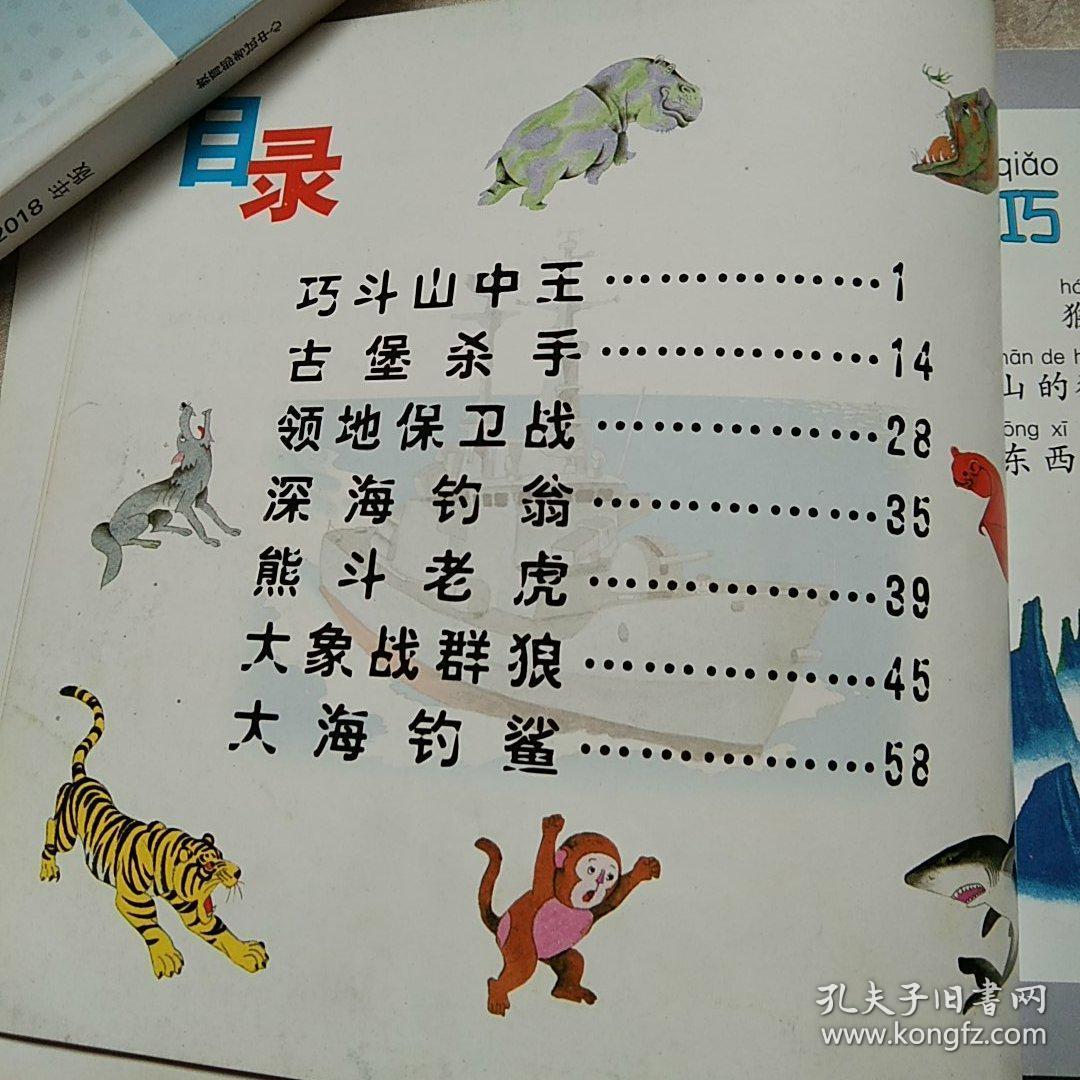 教育部考试中心
2018 年版
目录
巧斗山中王……………1
古堡杀手……………14
领地保卫战……………28
深海钓翁……………35
熊斗老虎……………39
大象战群狼……………45
大海钓鲨……………58
qiǎo
巧
山的
东西
孔夫子旧书网
www.kongfz.com